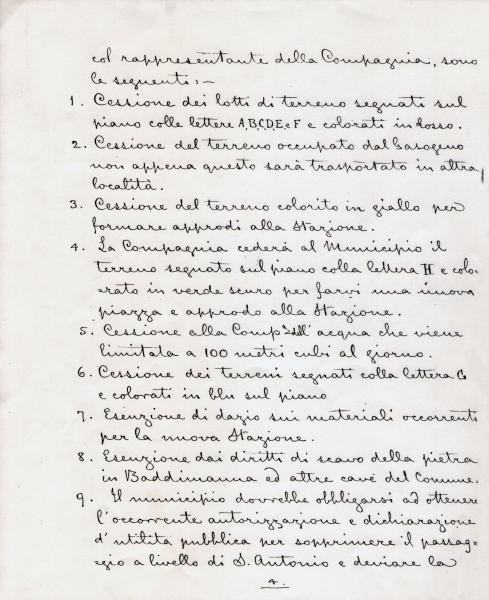 col rappresentante della Compagnia, sono
le seguenti:—
1. Cessione dei lotti di terreno segnati sul
piano colle lettere A,B,C,D,E, e F e colorati in Rosso.
2. Cessione del terreno occupato dal Gasogeno
non appena questo sarà trasportato in altra
località.
3. Cessione del terreno colorito in giallo per
formare approdi alla Stazione.
4. La Compagnia cederà al Municipio il
terreno segnato sul piano colla lettera H e colo-
=rato in verde scuro per farvi una nuova
piazza e approdo alla Stazione.
5. Cessione alla Comp.ª dell' acqua che viene
limitata a 100 metri cubi al giorno.
6. Cessione dei terreni segnati colla lettera G
e colorati in blu sul piano
7. Esenzione di dazio sui materiali occorrenti
per la nuova Stazione.
8. Esenzione dai diritti di scavo della pietra
in Baddimanna ed altre cave del Comune.
9. Il municipio dovrebbe obbligarsi ad ottenere
l'occorrente autorizzazione e dichiarazione
d'utilita pubblica per sopprimere il passag-
=gio a livello di S. Antonio e deviare la
4.